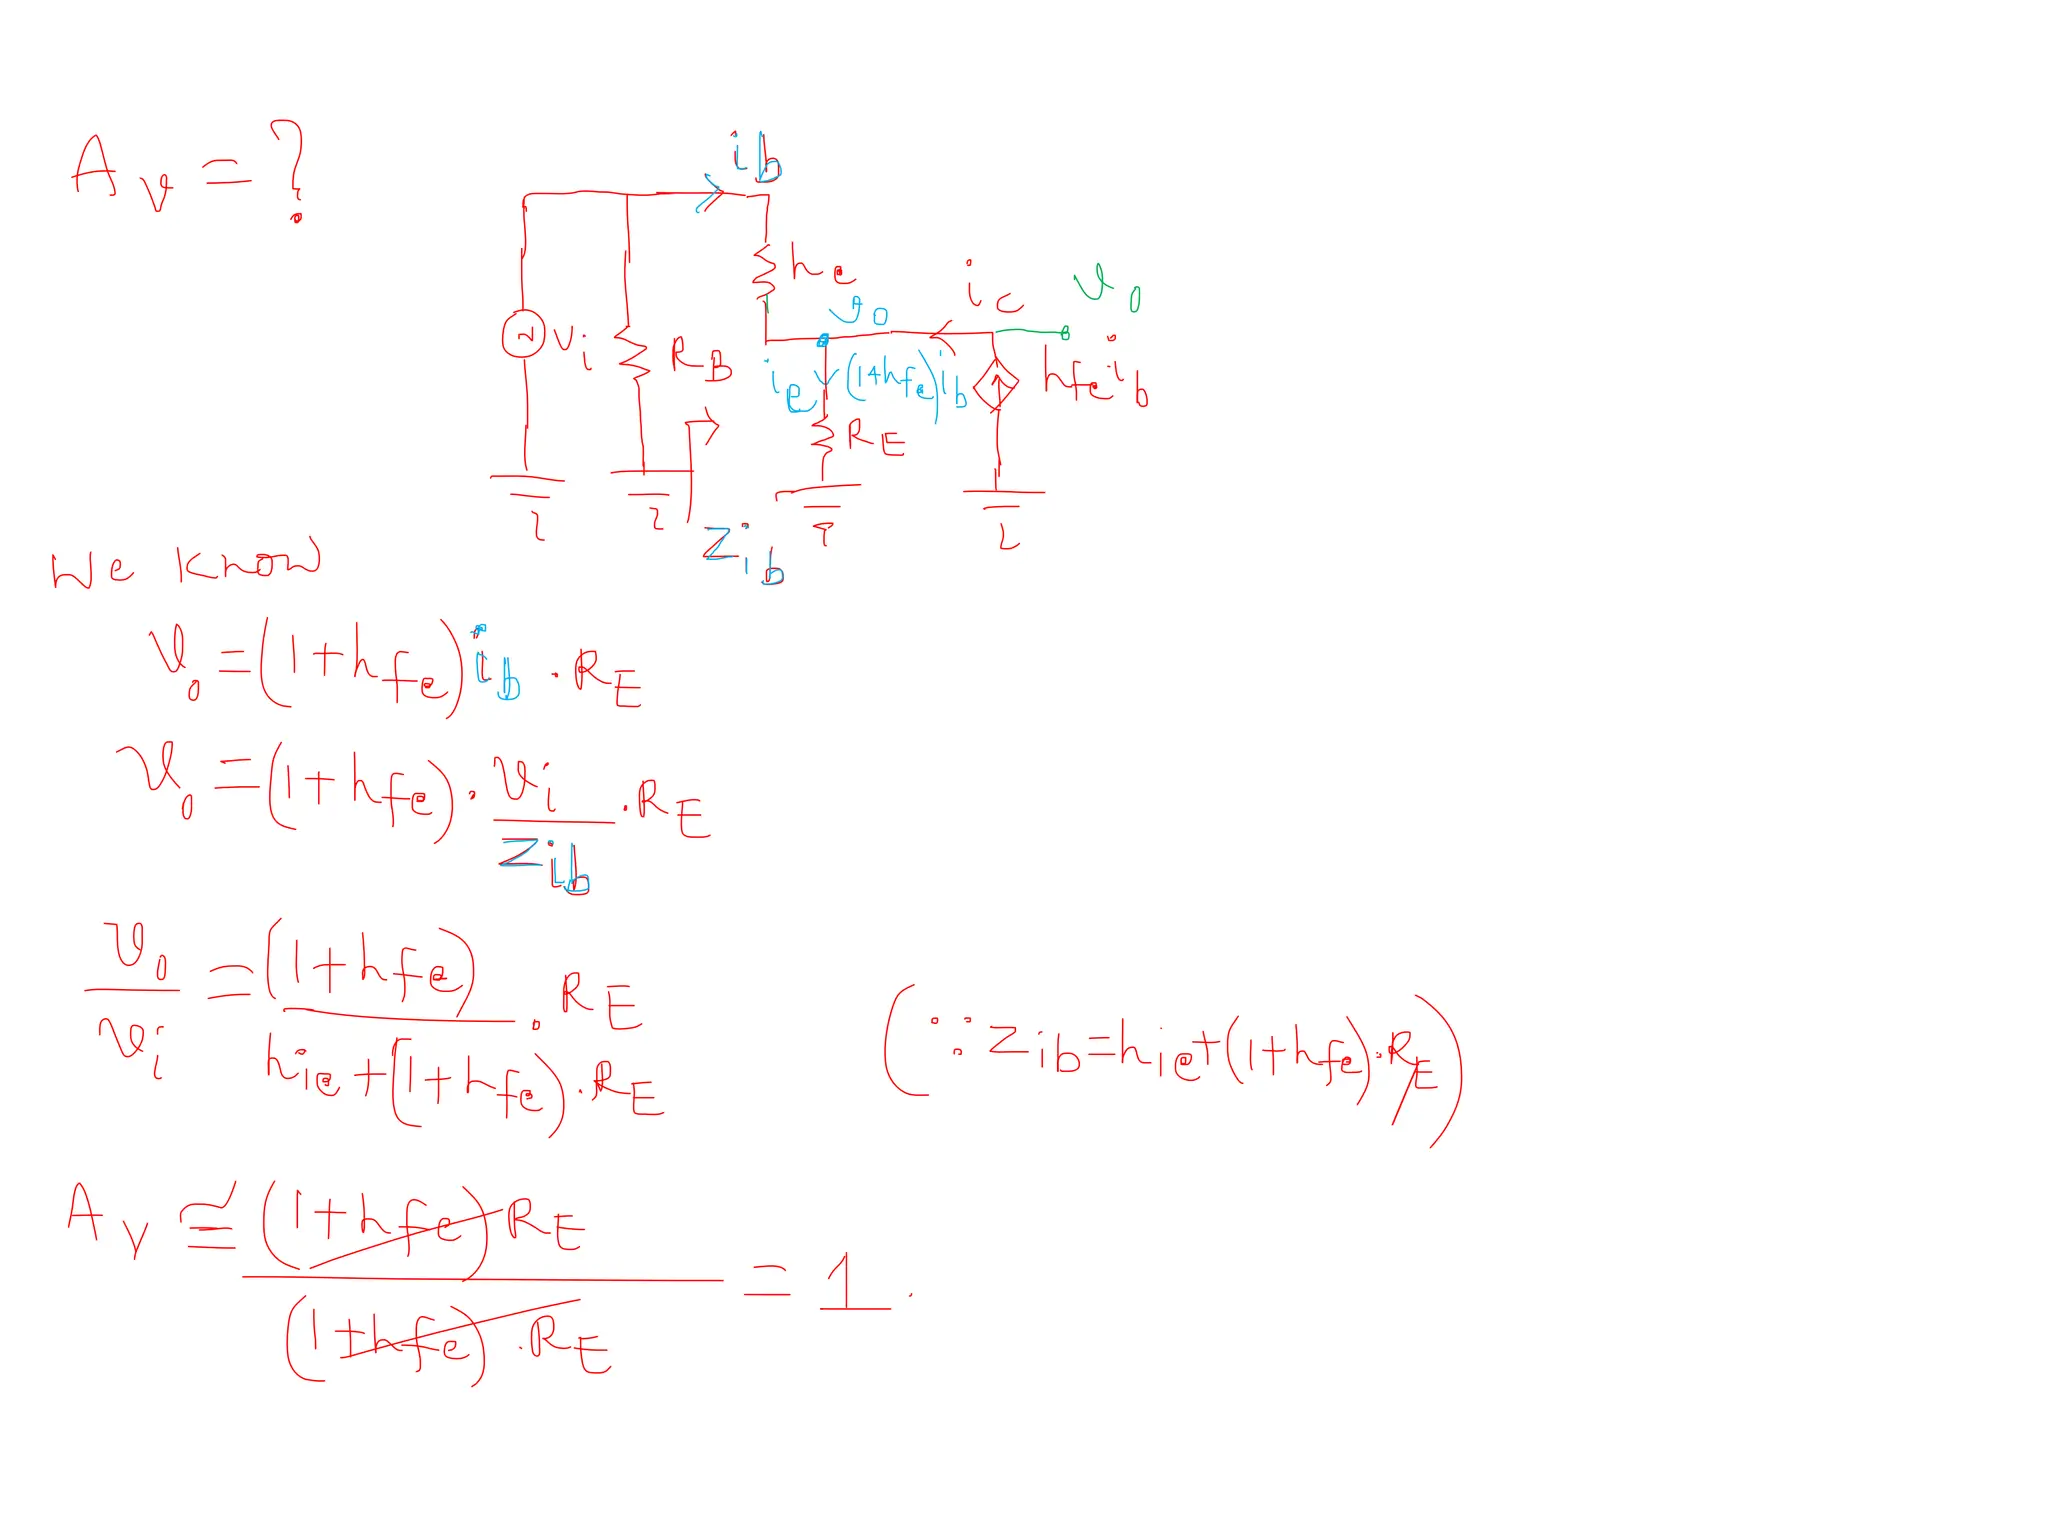 A_v = ?
i_b
h_e
i_c
v_0
v_0
V_i
R_B
i_e
(1+h_fe)i_b
h_fe i_b
R_E
Z_ib
We know
v_0 = (1+h_fe) i_b · R_E
v_0 = (1+h_fe) · v_i / Z_ib · R_E
v_0 / v_i = (1+h_fe) / h_ie + (1+h_fe) · R_E . R_E
(∵ Z_ib = h_ie + (1+h_fe) · R_E)
A_v ≅ (1+h_fe) R_E / (1+h_fe) · R_E = 1.